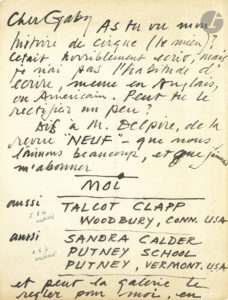 Cher Gaby
As tu vu mon
histoire de cirque (le mien)?
C'etait horriblement ecrit, mais
je n'ai pas l'habitude d'
ecrire, meme en Anglais,
ou Americain. Peut tu le
rectifier un peu?
Dis à M. Delpire, de la
revue "NEUF" - que nous
l'aimons beaucoup, et que j'aimerais
m'abonner
MOI
aussi TALCOT CLAPP
WOODBURY, CONN. USA
aussi SANDRA CALDER
PUTNEY SCHOOL
PUTNEY, VERMONT. USA
et peut la galerie le
regler pour moi, en